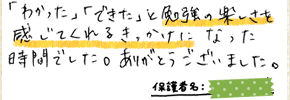 「わかった」「できた」と勉強の楽しさを
感じてくれるきっかけになった
時間でした。ありがとうございました。
保護者名: